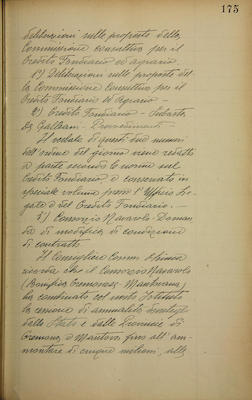 175
deliberazioni sulle proposte della
Commissione consultiva per il
Credito Fondiario ed agrario
1°) Deliberazioni sulle proposte del
la Commissione Consultiva per il
Credito Fondiario ed Agrario –
2°) Credito Fondiario –
Galleani – Provvedimenti
Il verbale di questi due numeri
dell'ordine del giorno viene redatto
a parte secondo le norme sul
Credito Fondiario e conservato in
speciale volume presso l'Ufficio
del Credito Fondiario. –
3°) Consorzio Navarolo Doman
da di modifica di condizioni
di contratto
Il Consigliere Comm.
ricorda che il Consorzio Navarolo
(Bonifica Cremonese - Mantovana)
ha combinato col nostro Istituto
la cessione di annualità
dallo Stato e dalle Provincie di
Cremona e Mantova fino all'am-
montare di cinque milioni, alle